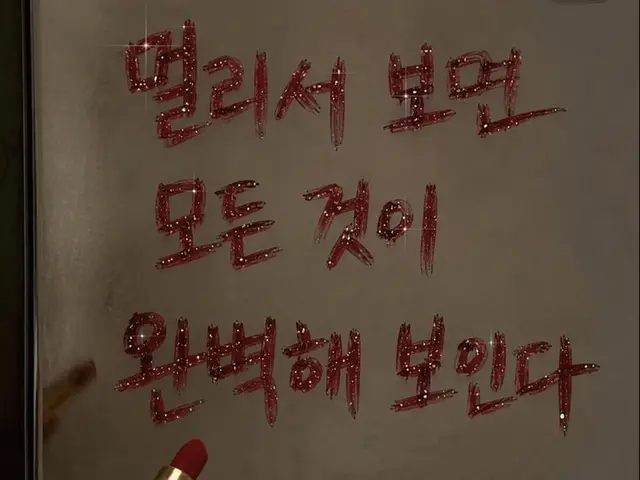 멀리서 보면
모든 것이
완벽해 보인다